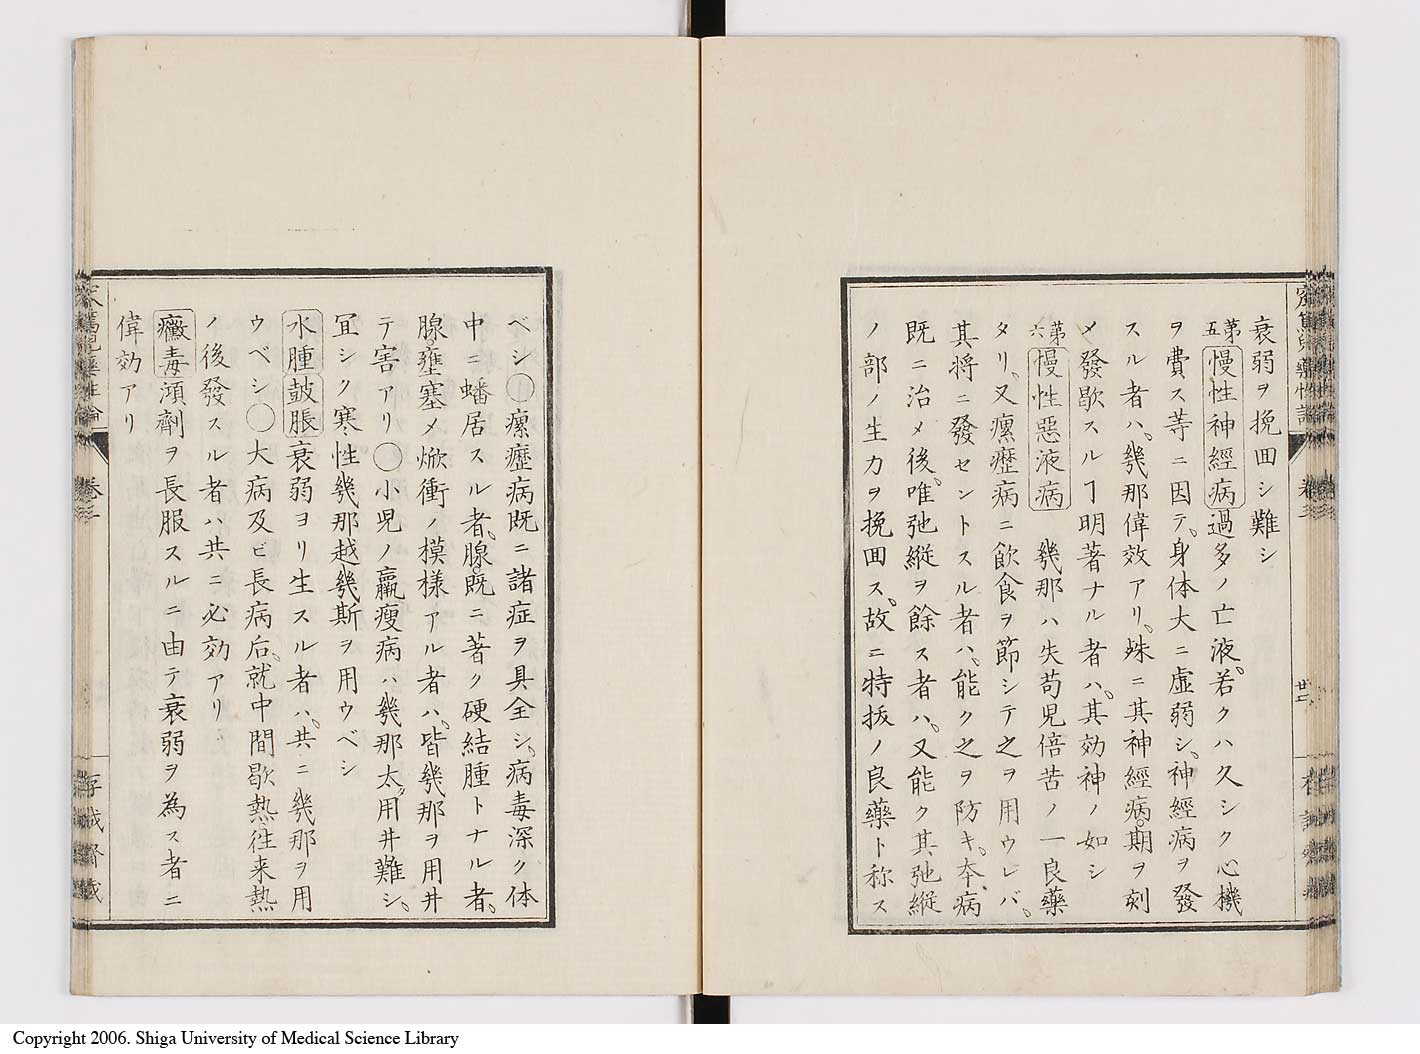 衰弱ヲ挽回シ難シ
第五慢性神經病過多ノ亡液。若クハ久シク心機
ヲ費ス等ニ因テ。身体大ニ虚弱シ。神經病ヲ發
スル者ハ。幾那偉效アリ。殊ニ其神經病。期ヲ刻
メ發歇スルヿ明著ナル者ハ。其効神ノ如シ
第六慢性惡液病 幾那ハ失苟児倍苦ノ一良藥
タリ。又瘰癧病ニ飲食ヲ節シテ之ヲ用ウレバ。
其將ニ發セントスル者ハ。能ク之ヲ防キ。本病
既ニ治メ後。唯弛縦ヲ餘ス者ハ。又能ク其弛縦
ノ部ノ生力ヲ挽回ス。故ニ特抜ノ良藥ト称ス
卷三
廿二
ベシ〇瘰癧病既ニ諸症ヲ具全シ。病毒深ク体
中ニ蟠居スル者。腺既ニ著ク硬結腫トナル者。
腺。壅塞メ焮衝ノ模様アル者ハ。皆幾那ヲ用井
テ害アリ〇小児ノ羸瘦病ハ幾那太用井難シ。
冝シク寒性幾那越幾斯ヲ用ウベシ
水腫鼓脹衰弱ヨリ生スル者ハ。共ニ幾那ヲ用
ウベシ〇大病及ビ長病后。就中間歇熱往来熱
ノ後發スル者ハ共ニ必効アリ
黴毒澒劑ヲ長服スルニ由テ衰弱ヲ為ス者ニ
偉効アリ
卷三
Copyright 2006. Shiga University of Medical Science Library